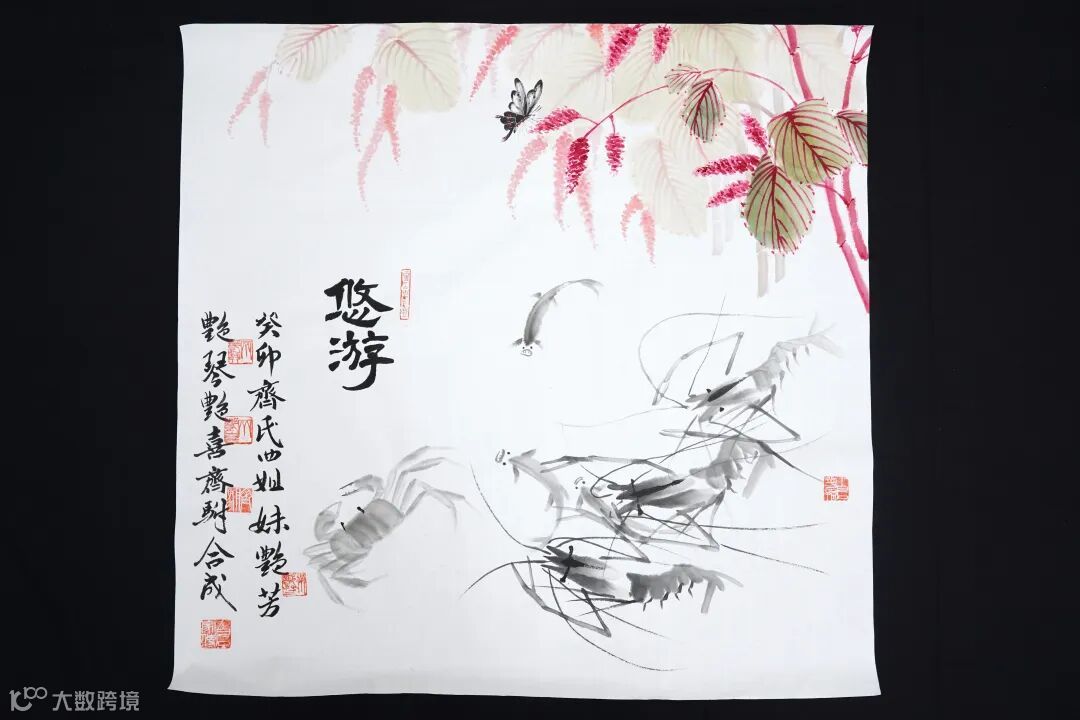 悠游
癸卯齊氏四姐妹艷芳
艷琴艷喜齊駙合成
大数跨境